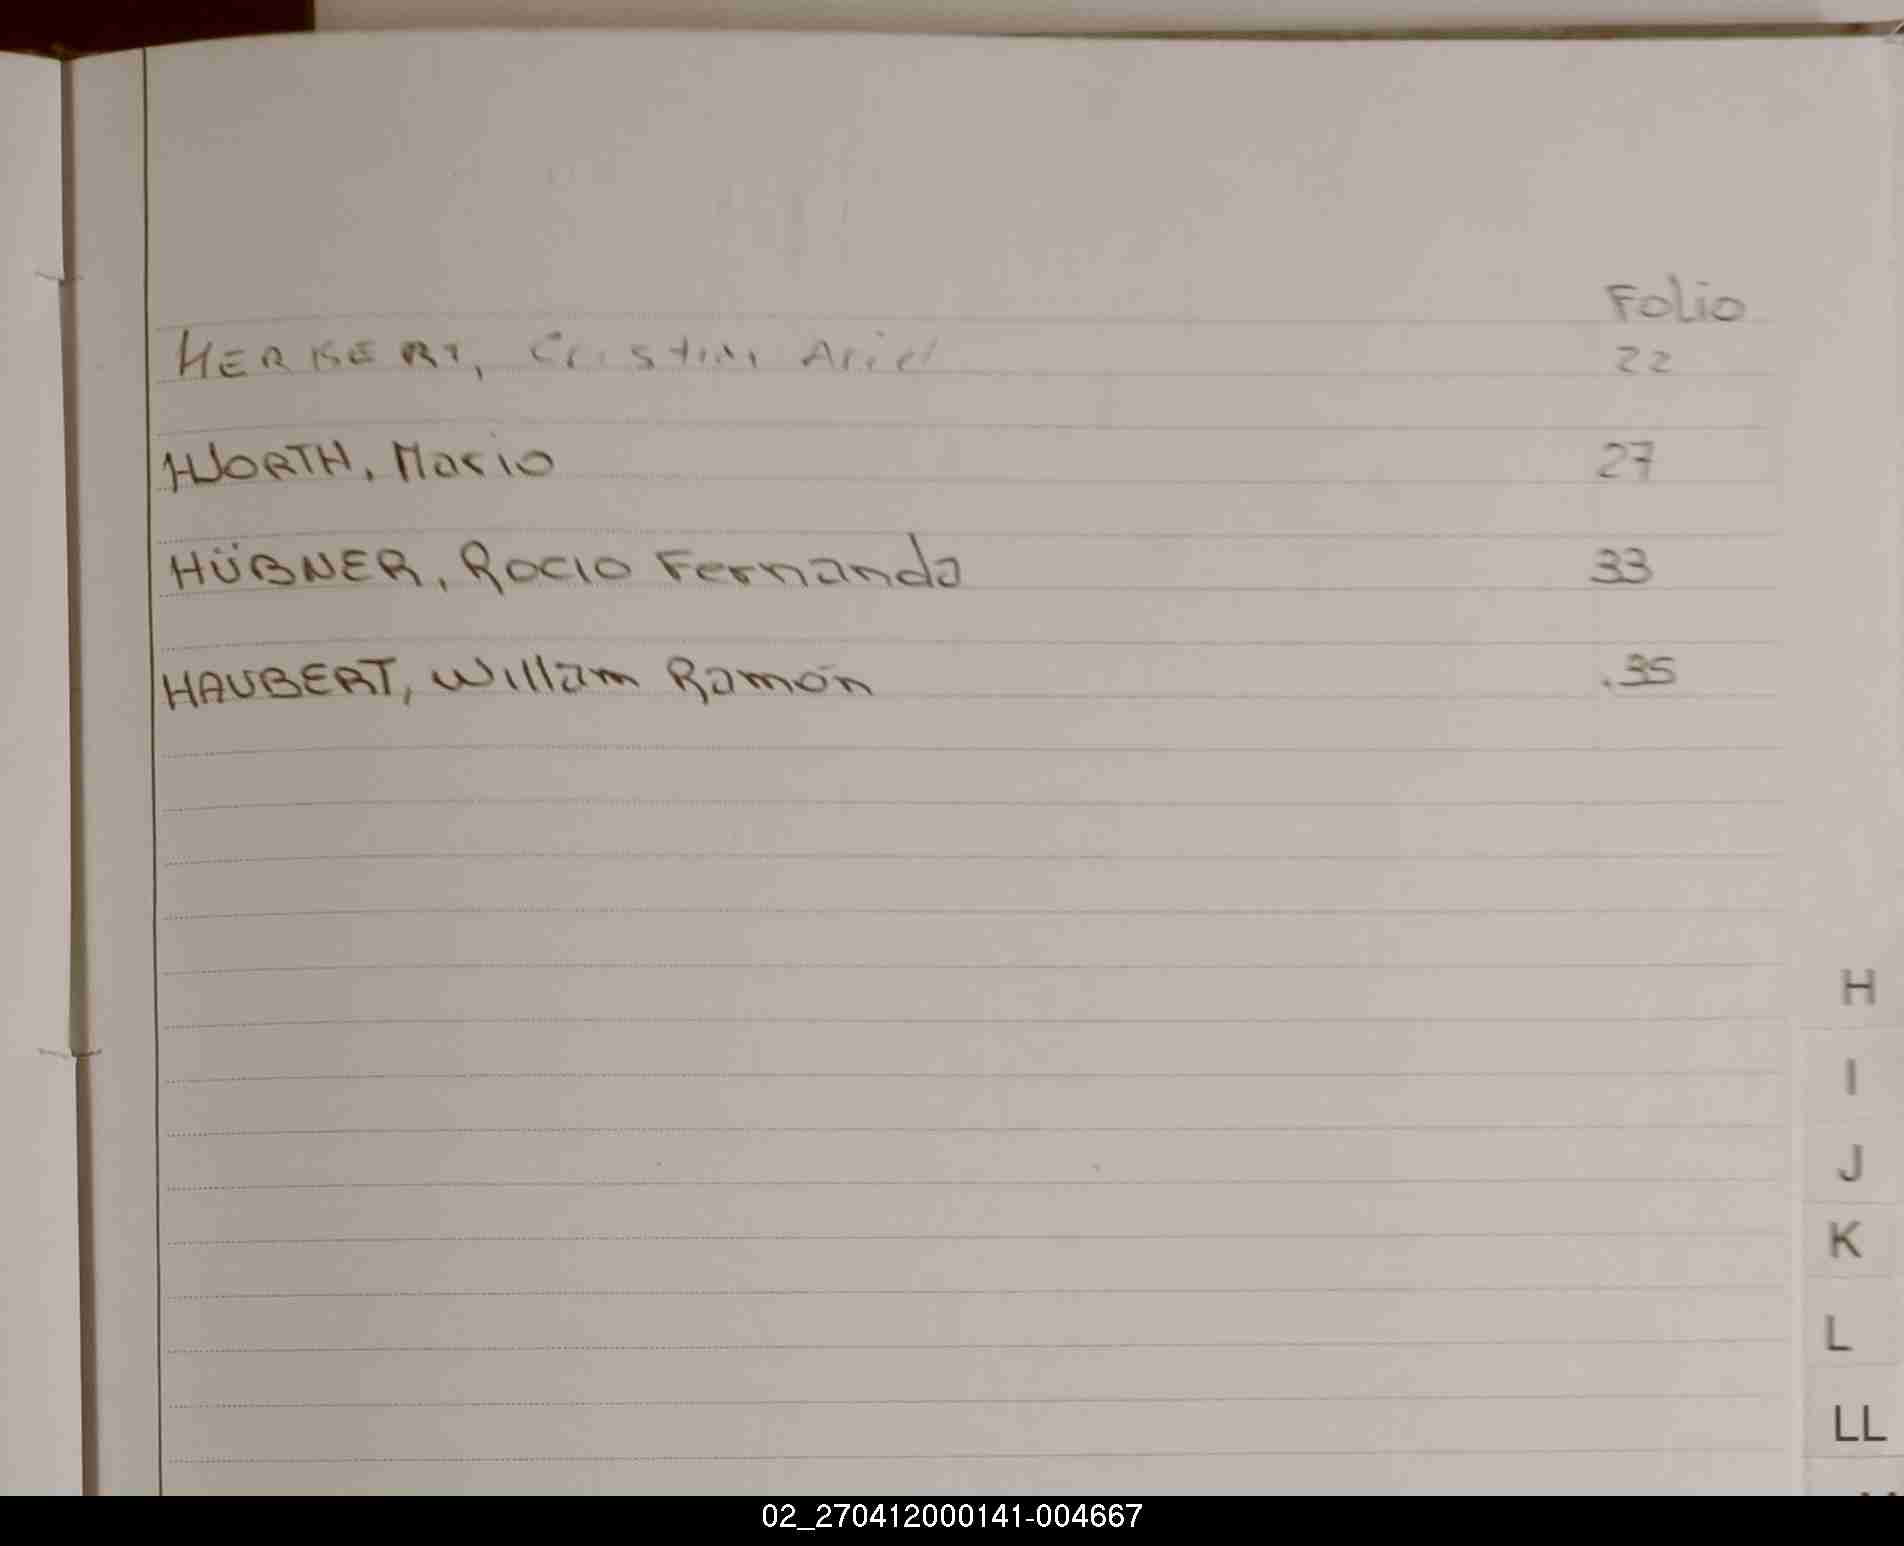 Folio
HERBERT, Cristian Ariel 22
HWORTH, Mario 27
HÜBNER, Rocio Fernanda 33
HAUBERT, Willam Ramón .35
H
I
J
K
L
LL
02_270412000141-004667